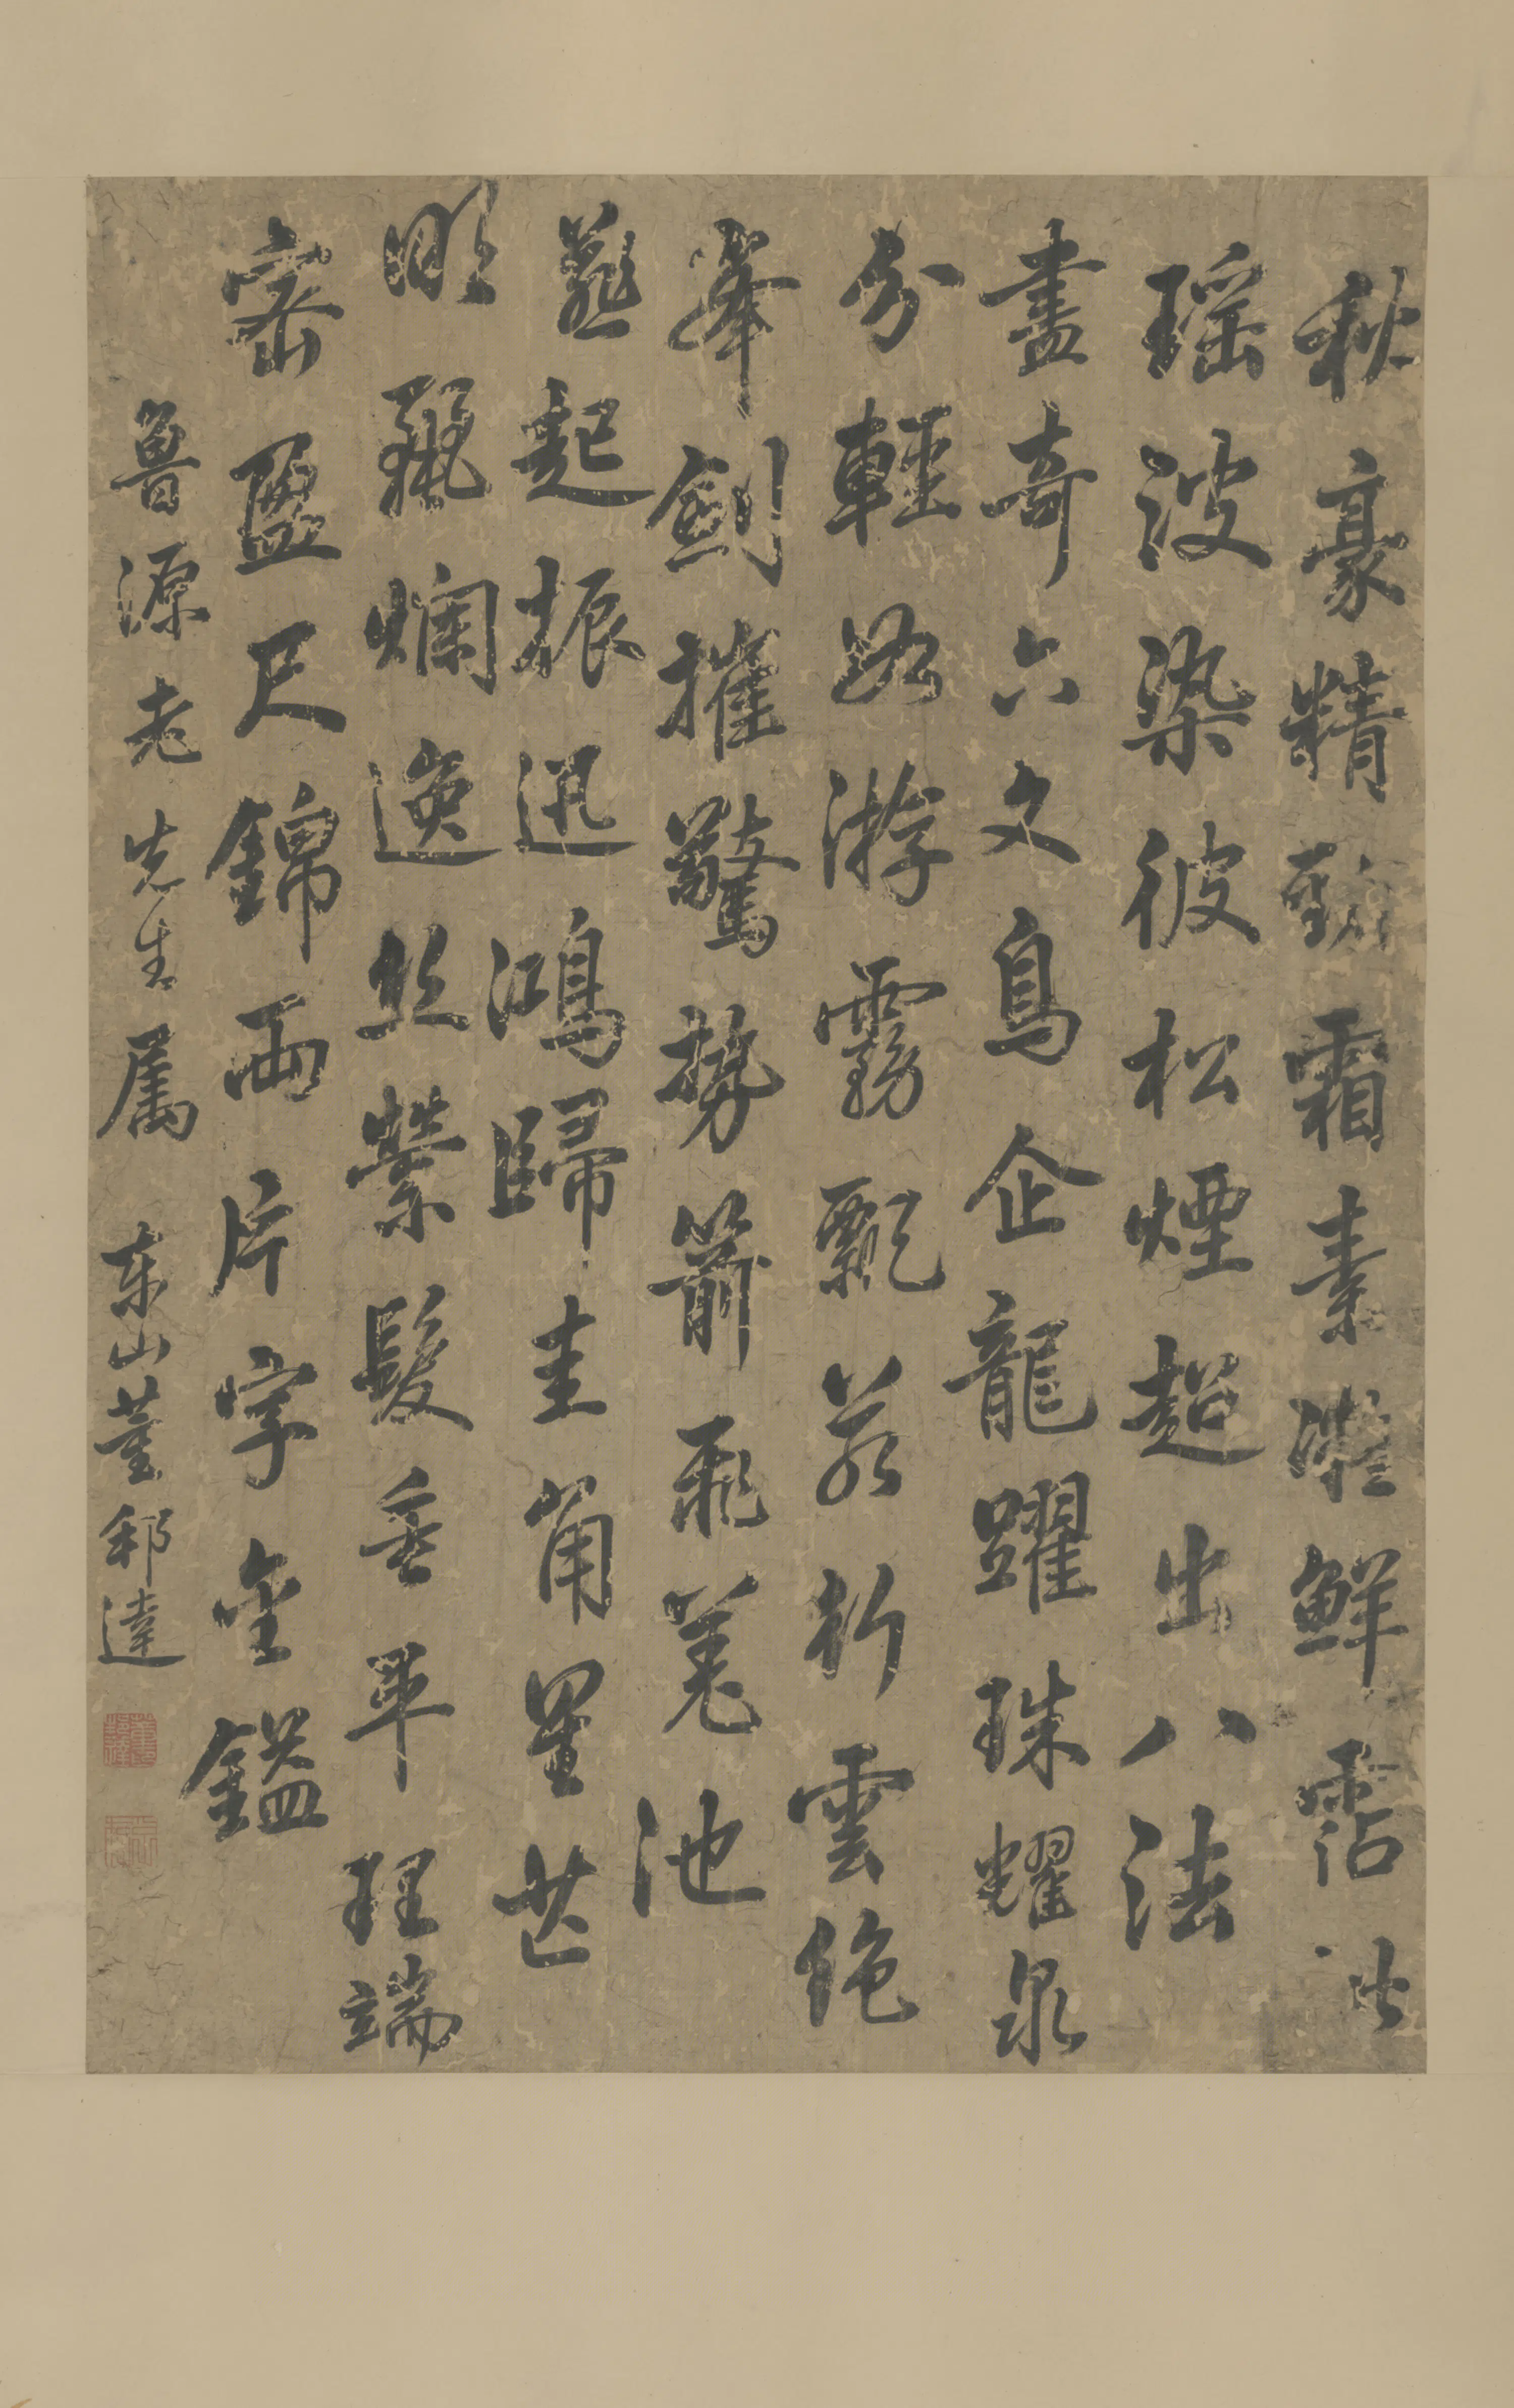 秋豪精勁霜素凝鮮霑此
瑶波染彼松煙超出八法
盡奇六文鳥企龍躍珠耀泉
分輕游霧飄若雲絶
峯劍摧驚勢箭飛差池
燕起振迅鴻歸圭角星芒
明麗爛逸丝縈髮垂平理端
密盈尺錦兩片字金鎰
魯源老先生屬 東山董邦達